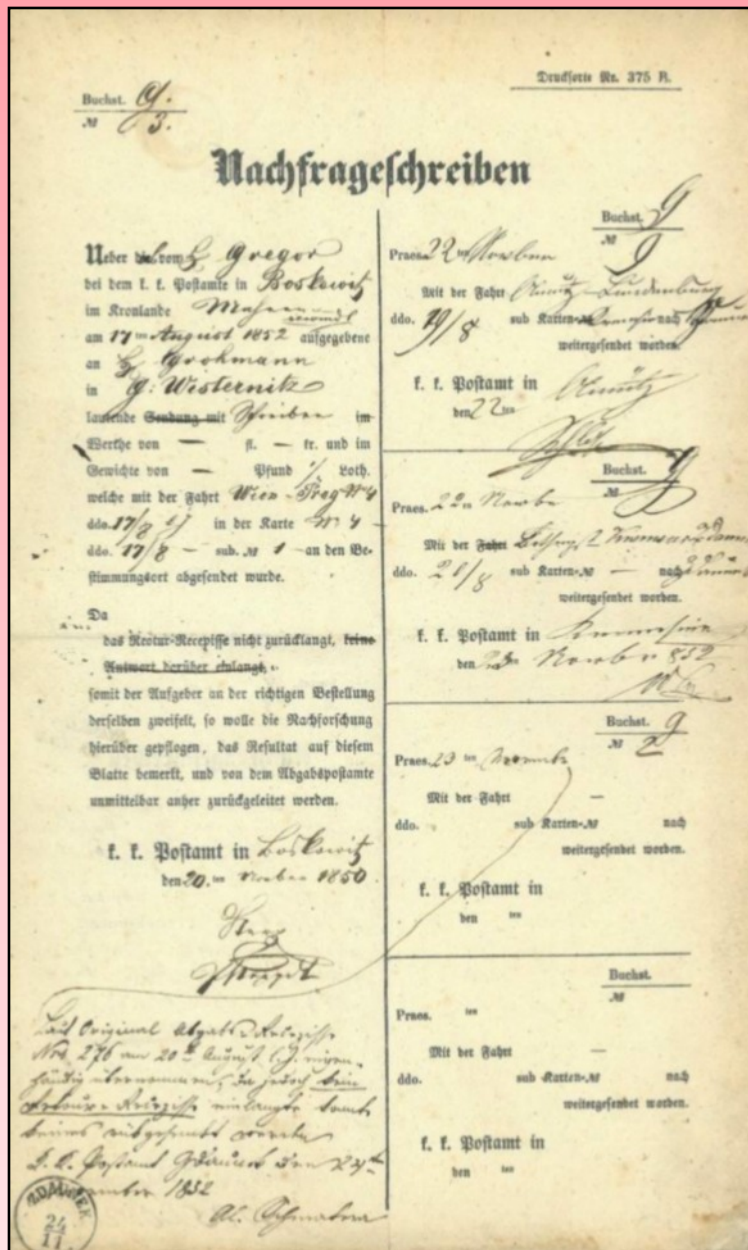 Drucksorte Nr. 375 B.
Buchst. G.
№ 3.
Nachfrageschreiben
Ueber die vom H. Gregor
bei dem k. k. Postamte in Boskowitz
im Kronlande Mähren
am 17ten August 1852 aufgegebene
an H. Grohmann
in G: Westernitz
lautende Sendung mit Schreiben im
Werthe von — fl. — kr. und im
Gewichte von — Pfund 1/ Loth.
welche mit der Fahrt Wien - Prag № 4
ddo. 17/8 in der Karte № 4 —
ddo. 17/8 — sub. № 1 — an den Be-
stimmungsort abgesendet wurde.
Da
das Retour-Recepisse nicht zurücklangt, keine
Antwort darüber einlangt,
somit der Aufgeber an der richtigen Bestellung
derselben zweifelt, so wolle die Nachforschung
hierüber gepflogen, das Resultat auf diesem
Blatte bemerkt, und von dem Abgabspostamte
unmittelbar anher zurückgeleitet werden.
k. k. Postamt in Boskowitz
den 20. ten November 1850
Laut Original Abgabs-Recepisse
Nro. 276 am 20t August l. J. eigen-
händig übernommen, da jedoch kein
Retour-Recepisse einlangte konnte
keines rückgesendet werden
K. K. Postamt den 24t
November 1852
24
11
Buchst. G
№ 9
Praes. 22ten November
Mit der Fahrt Olmütz - Lundenburg
ddo. 19/8 sub Karten-№ nach
weitergesendet worden.
k. k. Postamt in Olmütz
den 22 ten
Buchst. G
№
Praes. 22n Novbr
Mit der Fahrt
ddo. 21/8 sub Karten-№ — nach
weitergesendet worden.
k. k. Postamt in Kremsier
den Novber 852
Buchst. G
№ 2
Praes. 23 ten November
Mit der Fahrt —
ddo. sub Karten-№ nach
weitergesendet worden.
k. k. Postamt in
den ten
Buchst.
№
Praes. ten
Mit der Fahrt —
ddo. sub Karten-№ nach
weitergesendet worden.
k. k. Postamt in
den ten